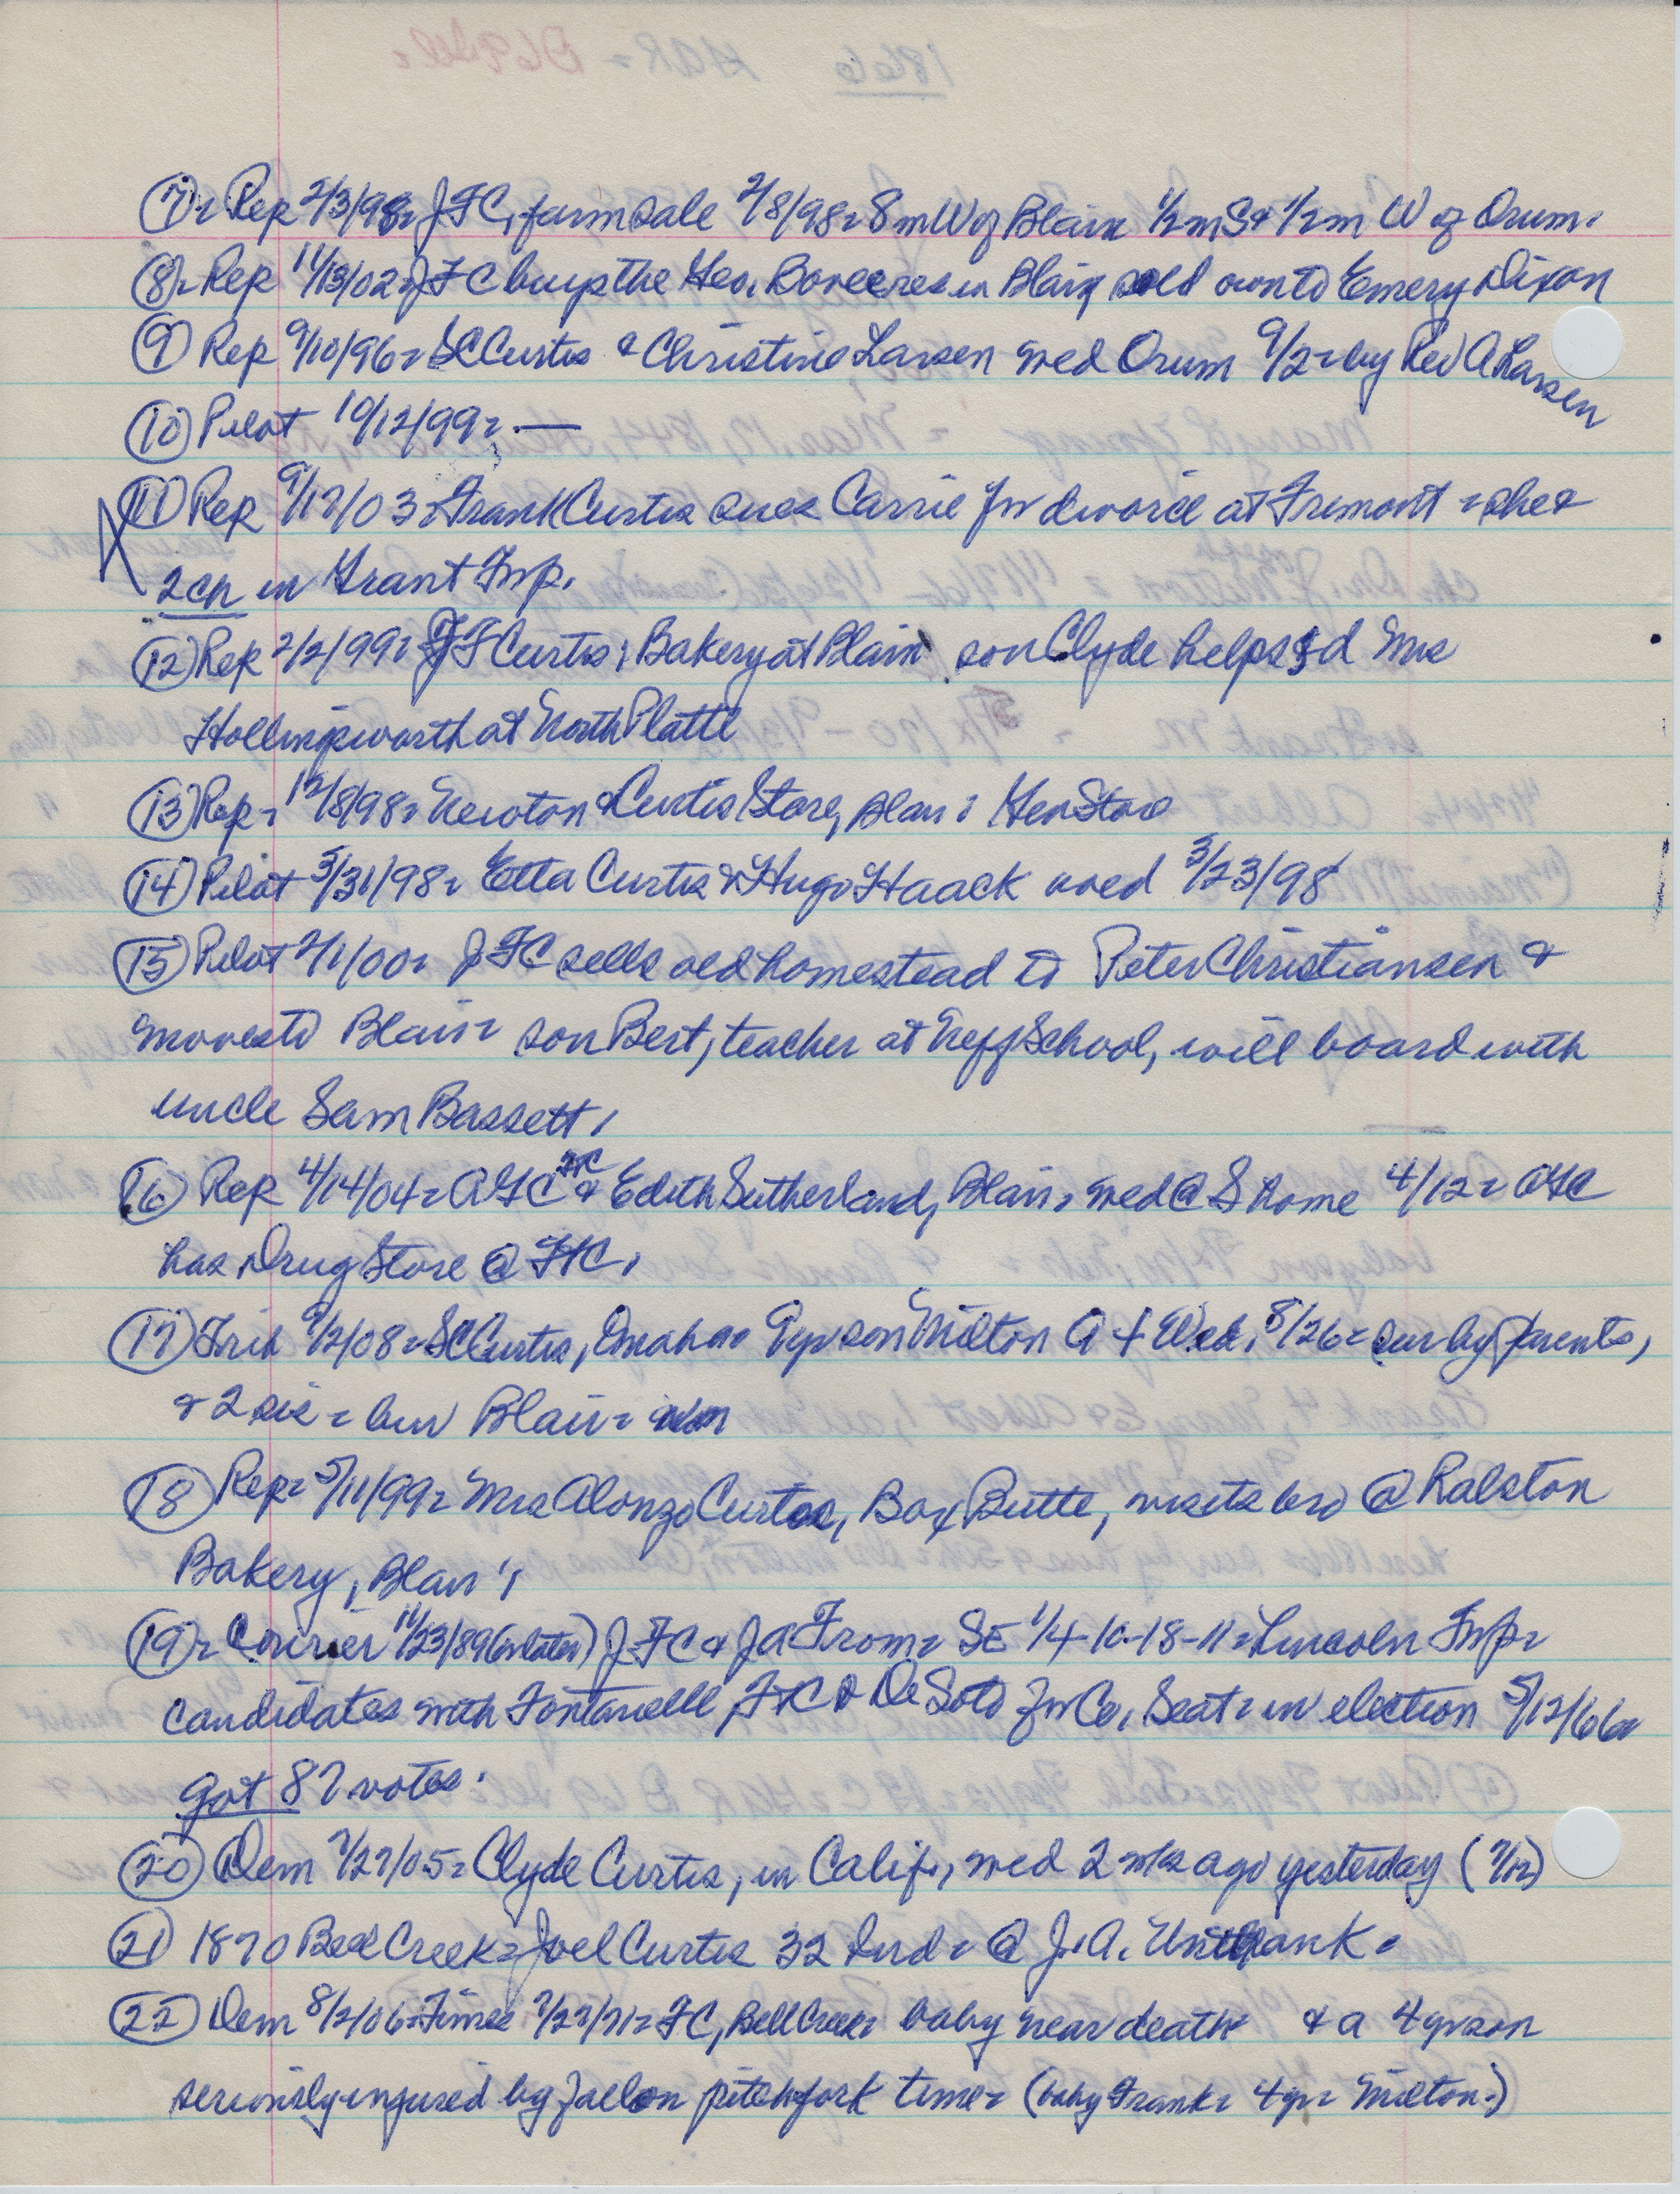 (7) Rep 2/3/98 - JFC, farm sale 2/8/98 - 8 m W of Blair 1/2 m S & 1/2 m W of Orum.
(8) Rep 11/13/02 - JFC buys the Geo. res in Blair sold own to Emery Dixon
(9) Rep 9/10/96 - SC Curtis & Christine Larsen med Orum 9/2 - by Rev A Larsen
(10) Pilot 10/12/99 - —
(11) Rep 9/17/03 - Frank Curtis sues Carrie for divorce at Fremont - she &
2 ch in Grant Twp.
(12) Rep 2/2/99 - JF Curtis, Bakery at Blair son Clyde helps Mrs
Hollingsworth at North Platte
(13) Rep - 12/8/98 - Newton & Curtis Store, Blair; Gen Store
(14) Pilot 3/31/98 - Etta Curtis & Hugo Haack med 3/23/98
(15) Pilot 2/1/00 - JFC sells old homestead to Peter Christiansen &
moves to Blair - son Bert, teacher at Neff School, will board with
uncle Sam Bassett.
(16) Rep 4/14/04 - AGC FtC & Edith Sutherland, Blair, med @ S home 4/12 - AGC
has Drug Store @ FtC.
(17) Trib 9/2/08 - SC Curtis, Omaha - 9 yr son Milton A + Wed. 8/26 - sur by parents,
& 2 sis - bur Blair -
(18) Rep - 5/11/99 - Mrs Alonzo Curtis, Box Butte, visits bro @ Ralston
Bakery, Blair.
(19) - Courier 11/23/89 (or later) JFC & JA From - SE 1/4-10-18-11 - Lincoln Twp -
candidates with Fontanelle, FtC & De Soto for Co. Seat - in election 5/12/66
got 87 votes.
(20) Dem 7/27/05 - Clyde Curtis, in Calif., med 2 wks ago yesterday (7/12)
(21) 1870 Bell Creek - Joel Curtis 32 Ind - @ J. A. Unthank.
(22) Dem 8/2/06 - Times 7/27/71 - FC, Bell Creek - baby near death & a 4 yr son
seriously injured by fall on pitchfork tine - (baby Frank - 4 yr - Milton.)